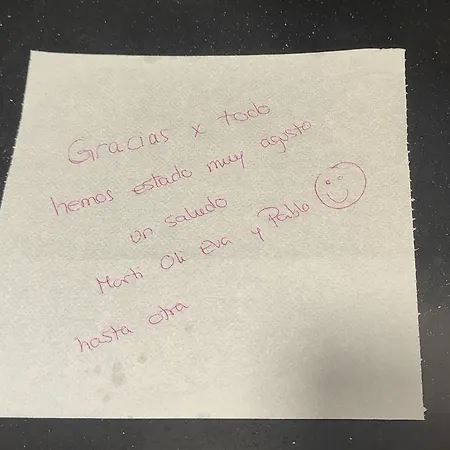 Gracias x todo
hemos estado muy agusto
un saludo
Marti Oli Eva y Pablo
hasta otra